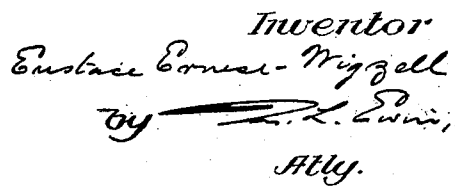 Inventor
Eustace Ernest Wigzell
by L. Ewin,
Atty.